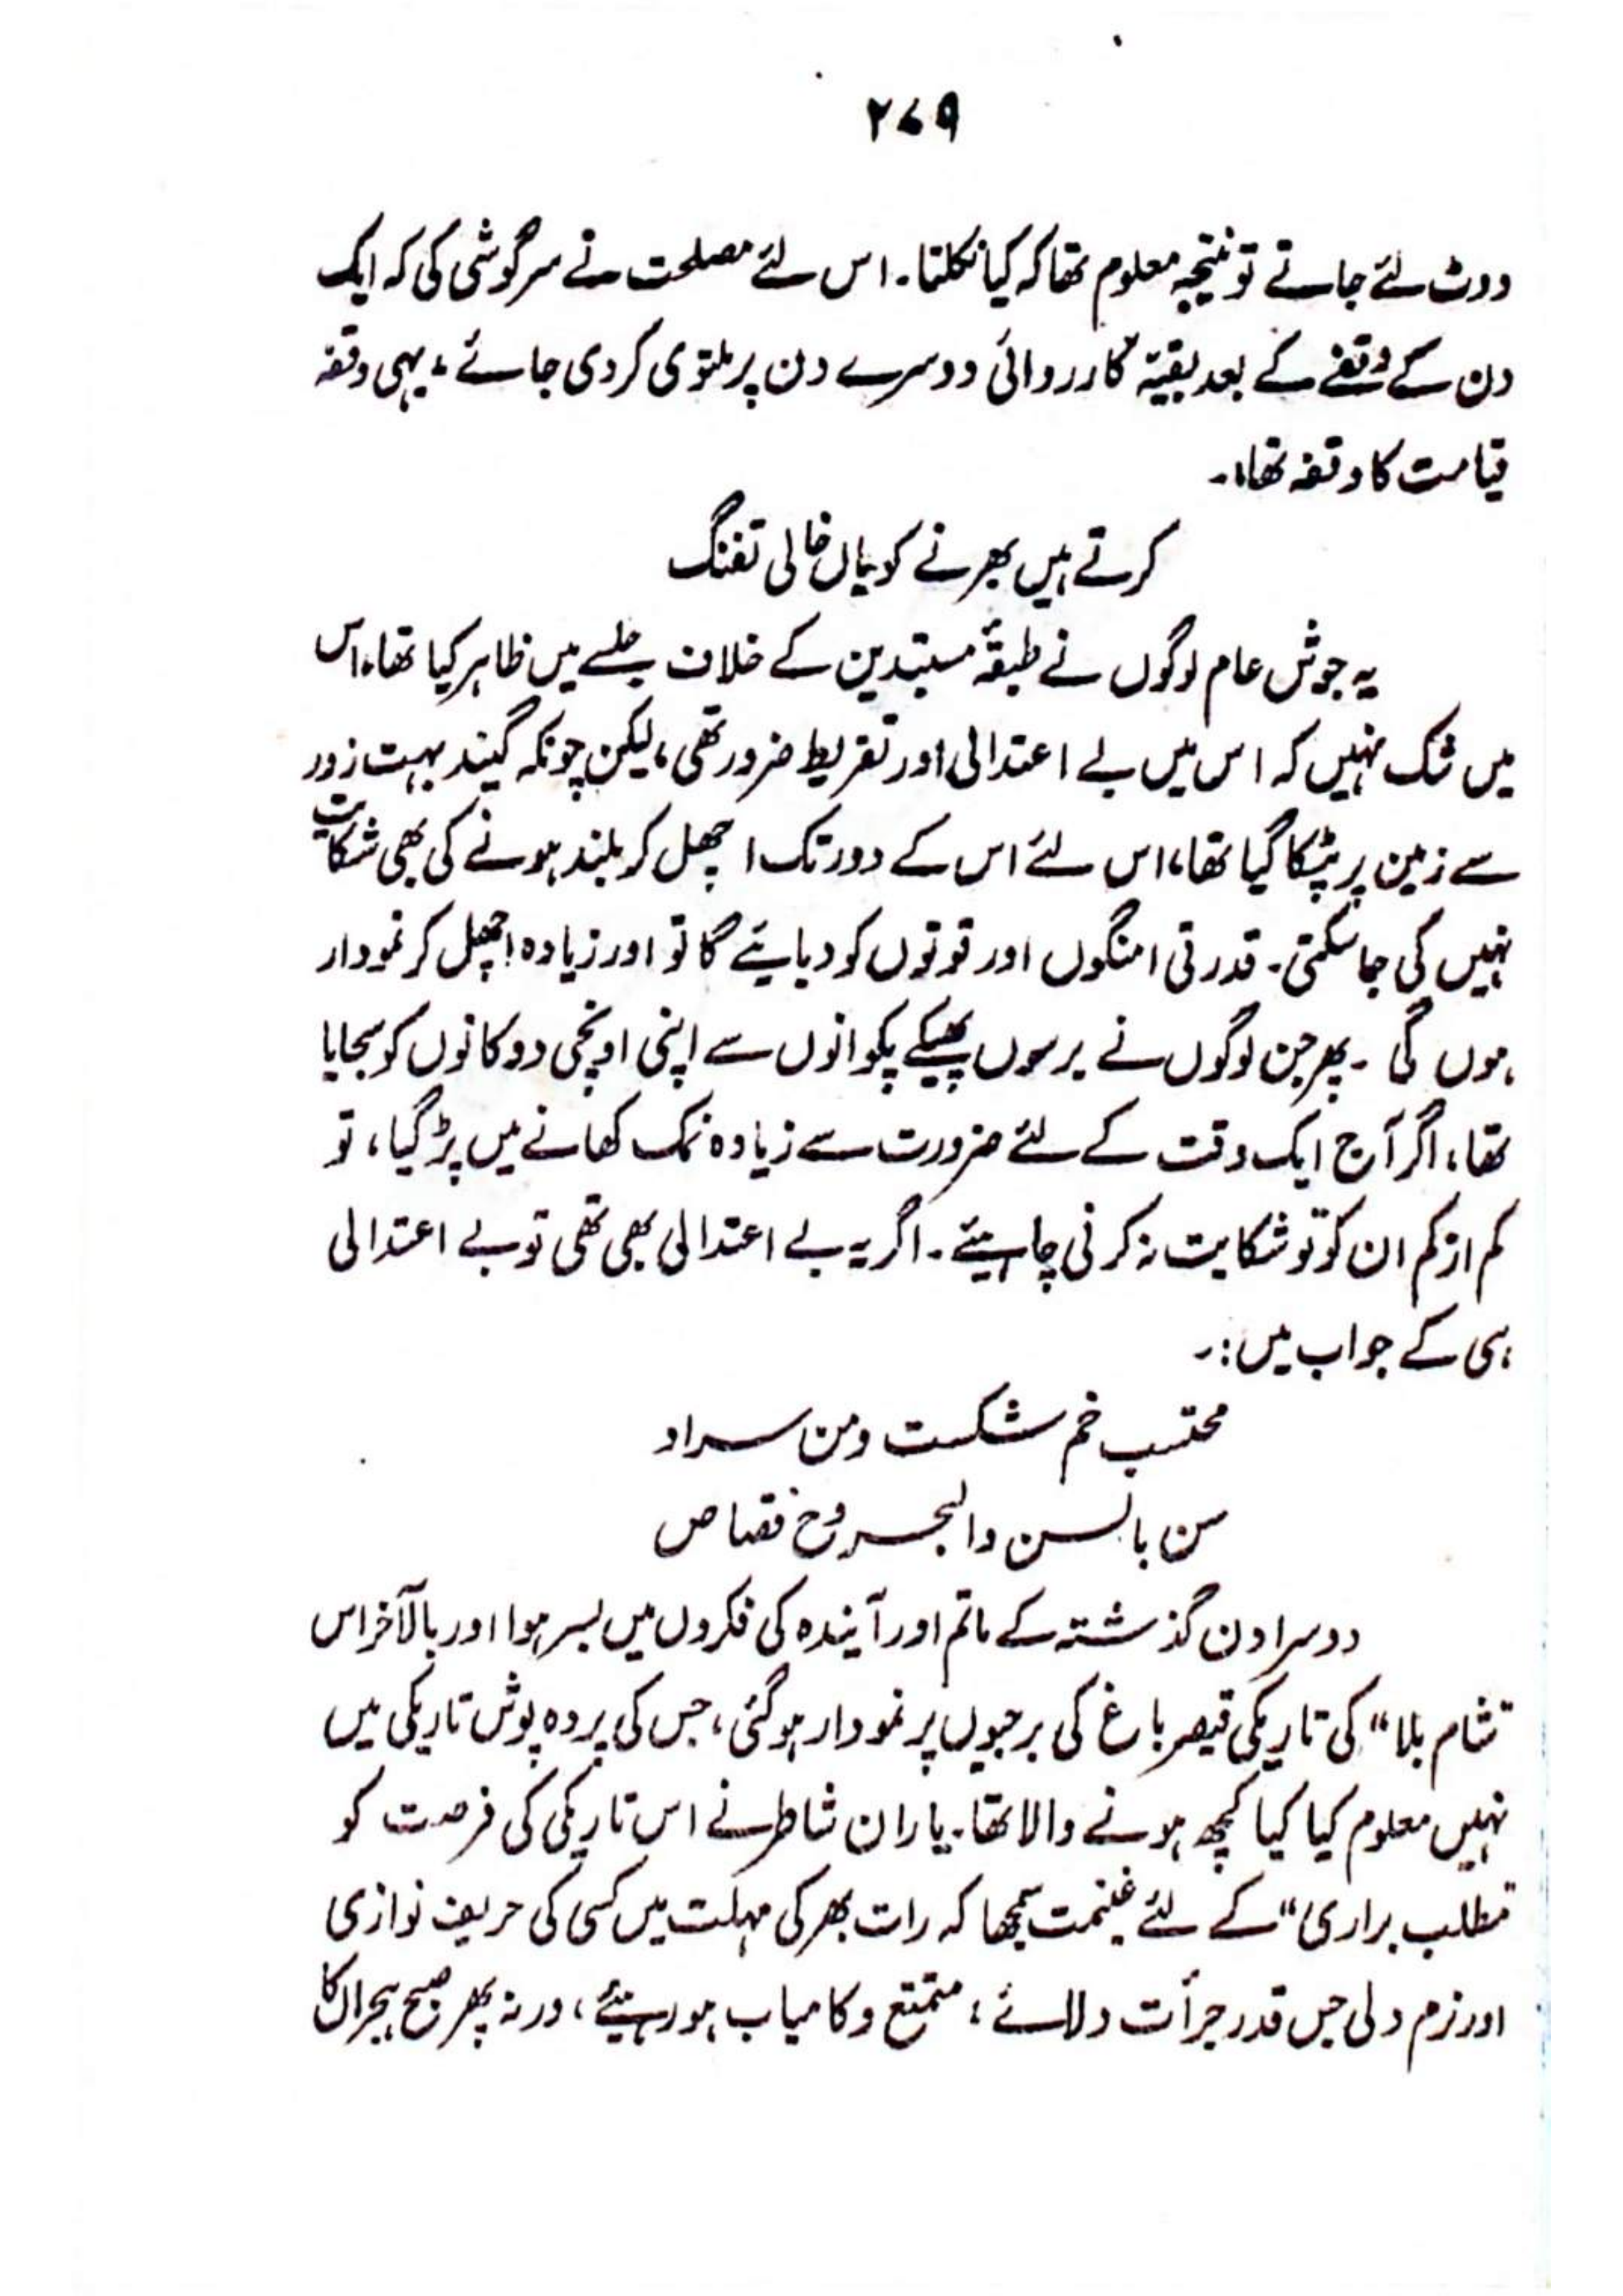 ۲۷۹
ووٹ لئے جاتے تو نتیجہ معلوم تھا کہ کیا نکلتا۔ اس لئے مصلحت نے سرگوشی کی کہ ایک
دن کے وقفے کے بعد بقیۃ کارروائی دوسرے دن پر ملتوی کر دی جائے؛ یہی وقفہ
قیامت کا وقفہ تھا،۔
کرتے ہیں بھرنے کو یاں خالی تفنگ
یہ جوش عام لوگوں نے طبقۂ مستبدین کے خلاف جلسے میں ظاہر کیا تھا، اس
میں شک نہیں کہ اس میں بے اعتدالی اور تفریط ضرور تھی، لیکن چونکہ گیند بہت زور
سے زمین پر پٹکا گیا تھا، اس لئے اس کے دور تک اچھل کر بلند ہونے کی بھی شکایت
نہیں کی جا سکتی۔ قدرتی امنگوں اور قوتوں کو دبایئے گا تو اور زیادہ اچھل کر نمودار
ہوں گی ۔ پھر جن لوگوں نے برسوں پھیکے پکوانوں سے اپنی اونچی دوکانوں کو سجایا
تھا، اگر آج ایک وقت کے لئے ضرورت سے زیادہ نمک کھانے میں پڑ گیا، تو
کم از کم ان کو تو شکایت نہ کرنی چاہیئے۔ اگر یہ بے اعتدالی بھی تھی تو بے اعتدالی
ہی کے جواب میں:۔
محتسب خم شکست ومن سراو
سن بالسن والجروح قصاص
دوسرا دن گذشتہ کے ماتم اور آیندہ کی فکروں میں بسر ہوا اور بالآخر اس
"شام بلا" کی تاریکی قیصر باغ کی برجیوں پر نمودار ہو گئی، جس کی پردہ پوش تاریکی میں
نہیں معلوم کیا کیا کچھ ہونے والا تھا۔ یاران شاطر نے اس تاریکی کی فرصت کو
"مطلب براری" کے لئے غنیمت سمجھا کہ رات بھر کی مہلت میں کسی کی حریف نوازی
اور نرم دلی جس قدر جرأت دلائے؛ متمتع و کامیاب ہو رہیئے، ورنہ پھر صبح ہجراں کا